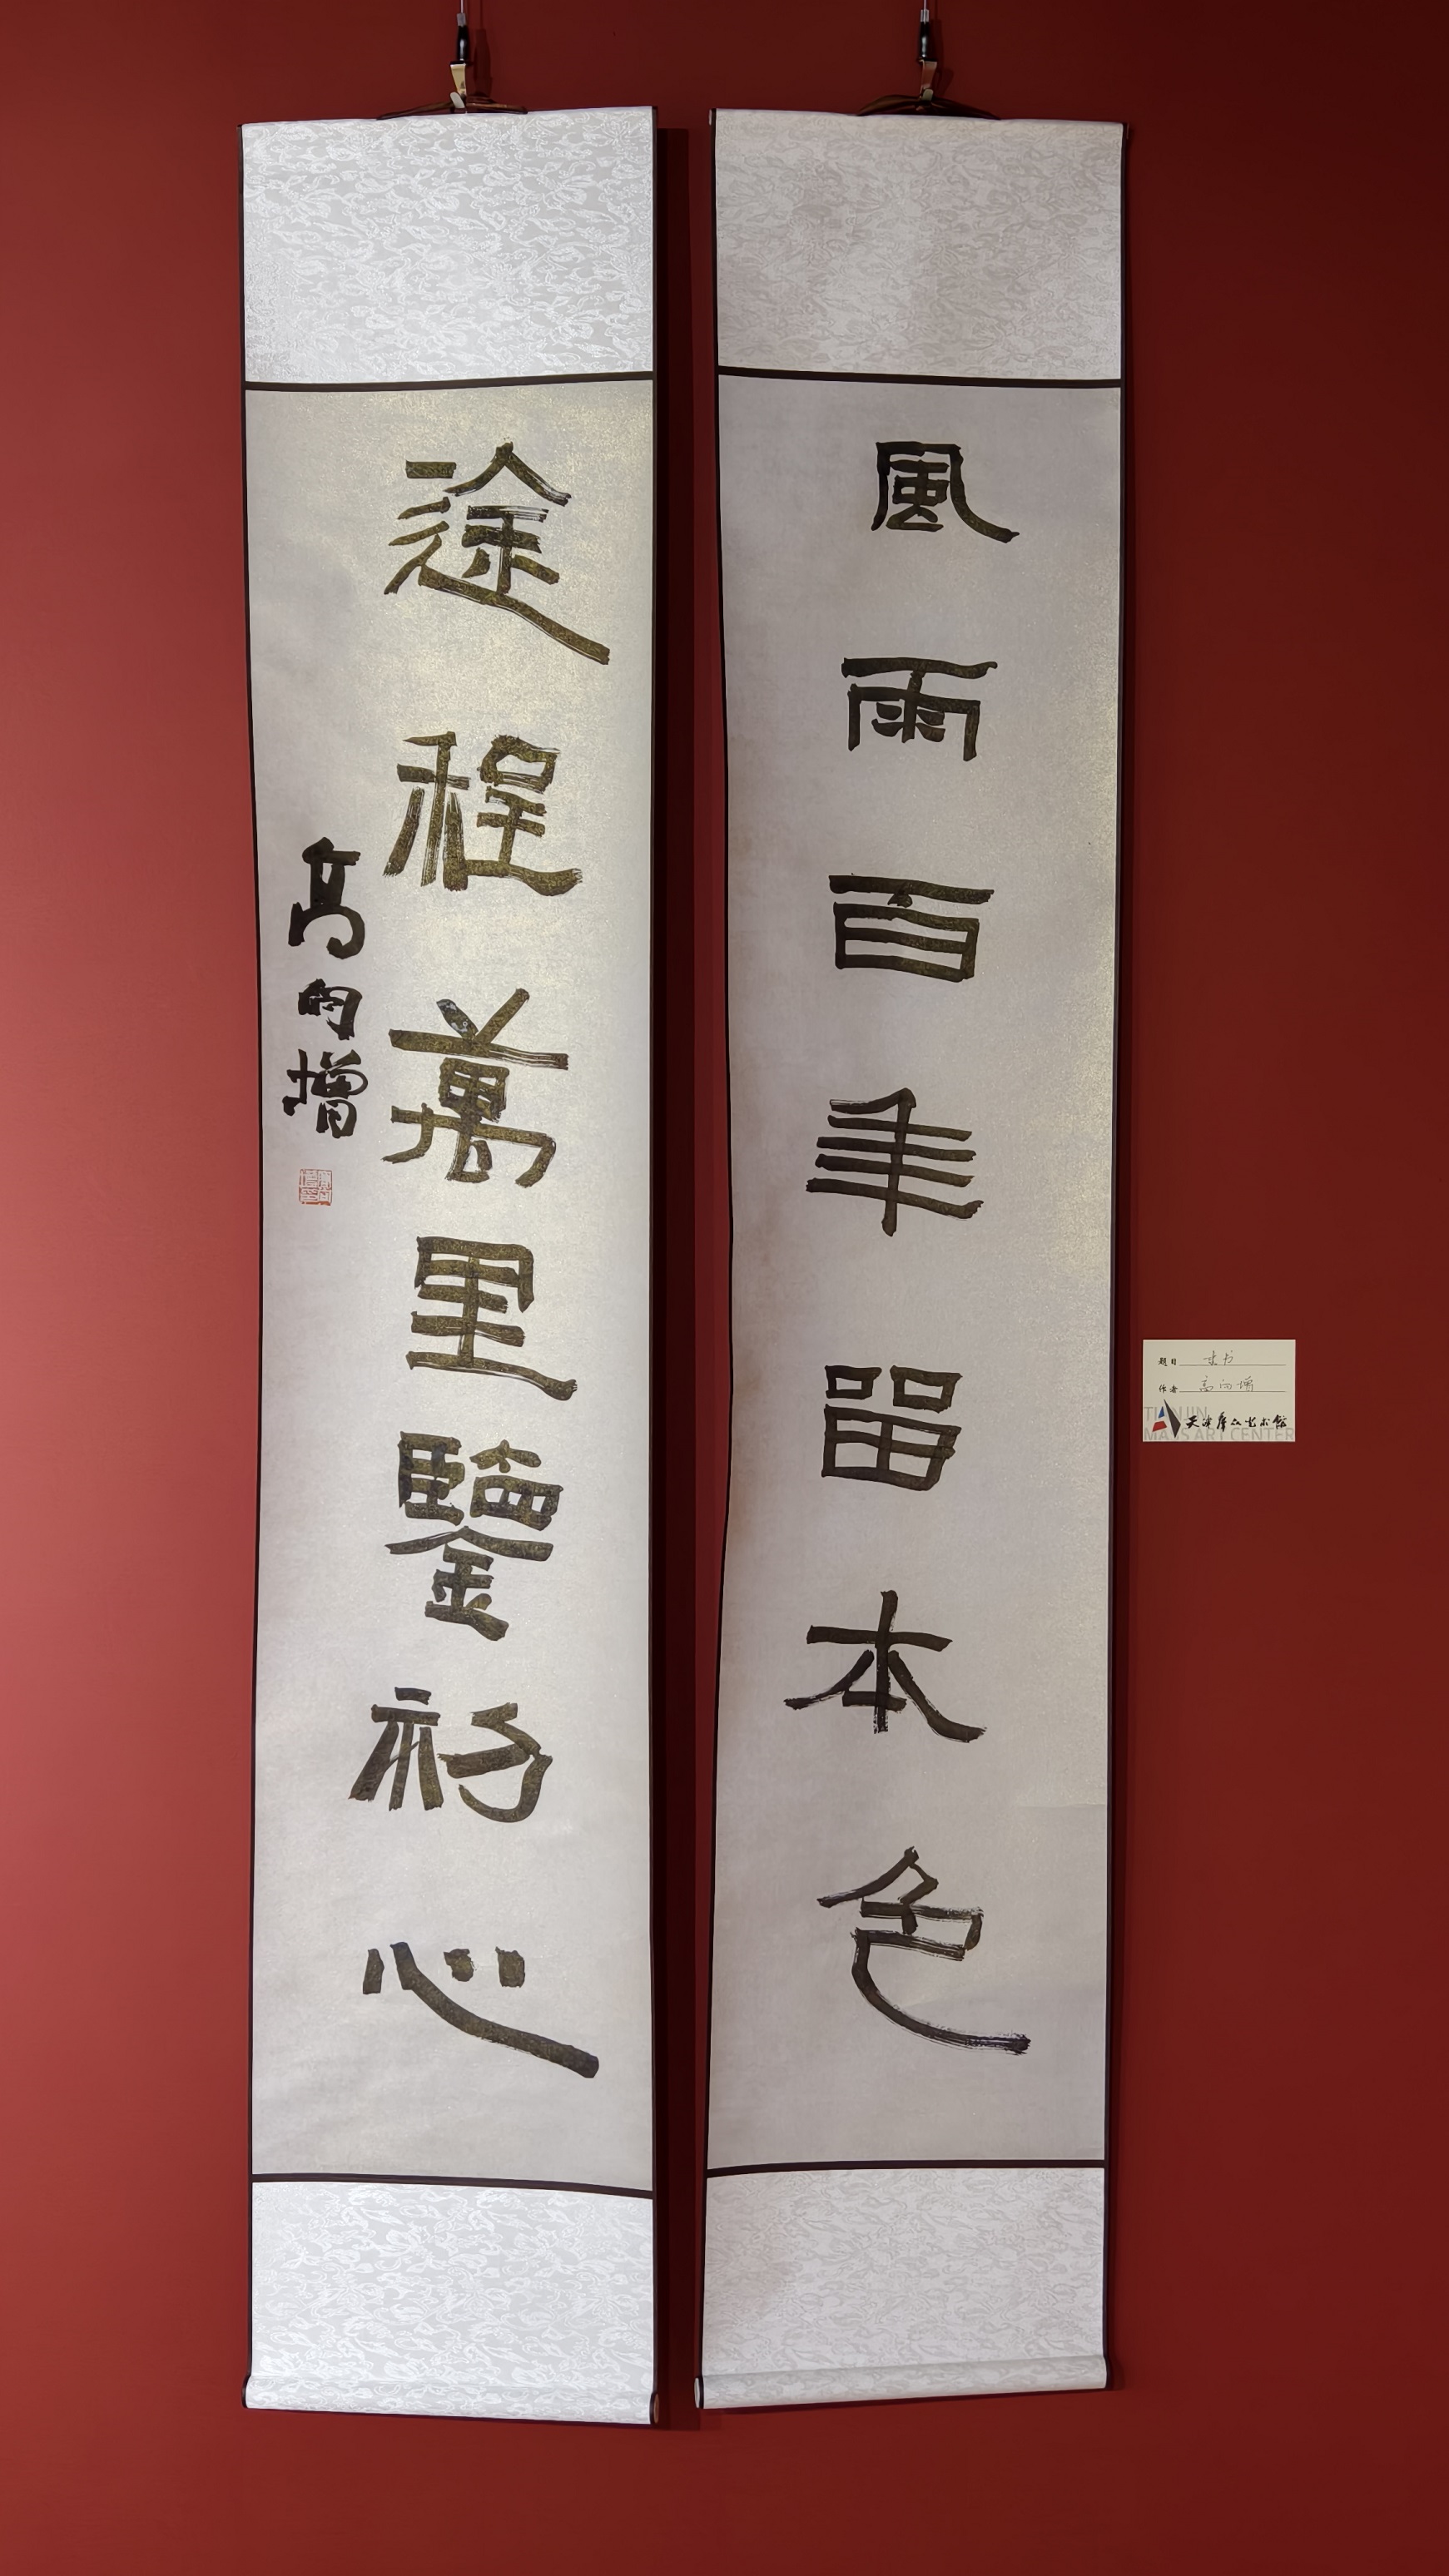 風雨百年留本色
途程萬里鑒初心
高向增
题目 隶书
作者 高向增
TIANJIN
天津群众艺术馆
MASS ART CENTER